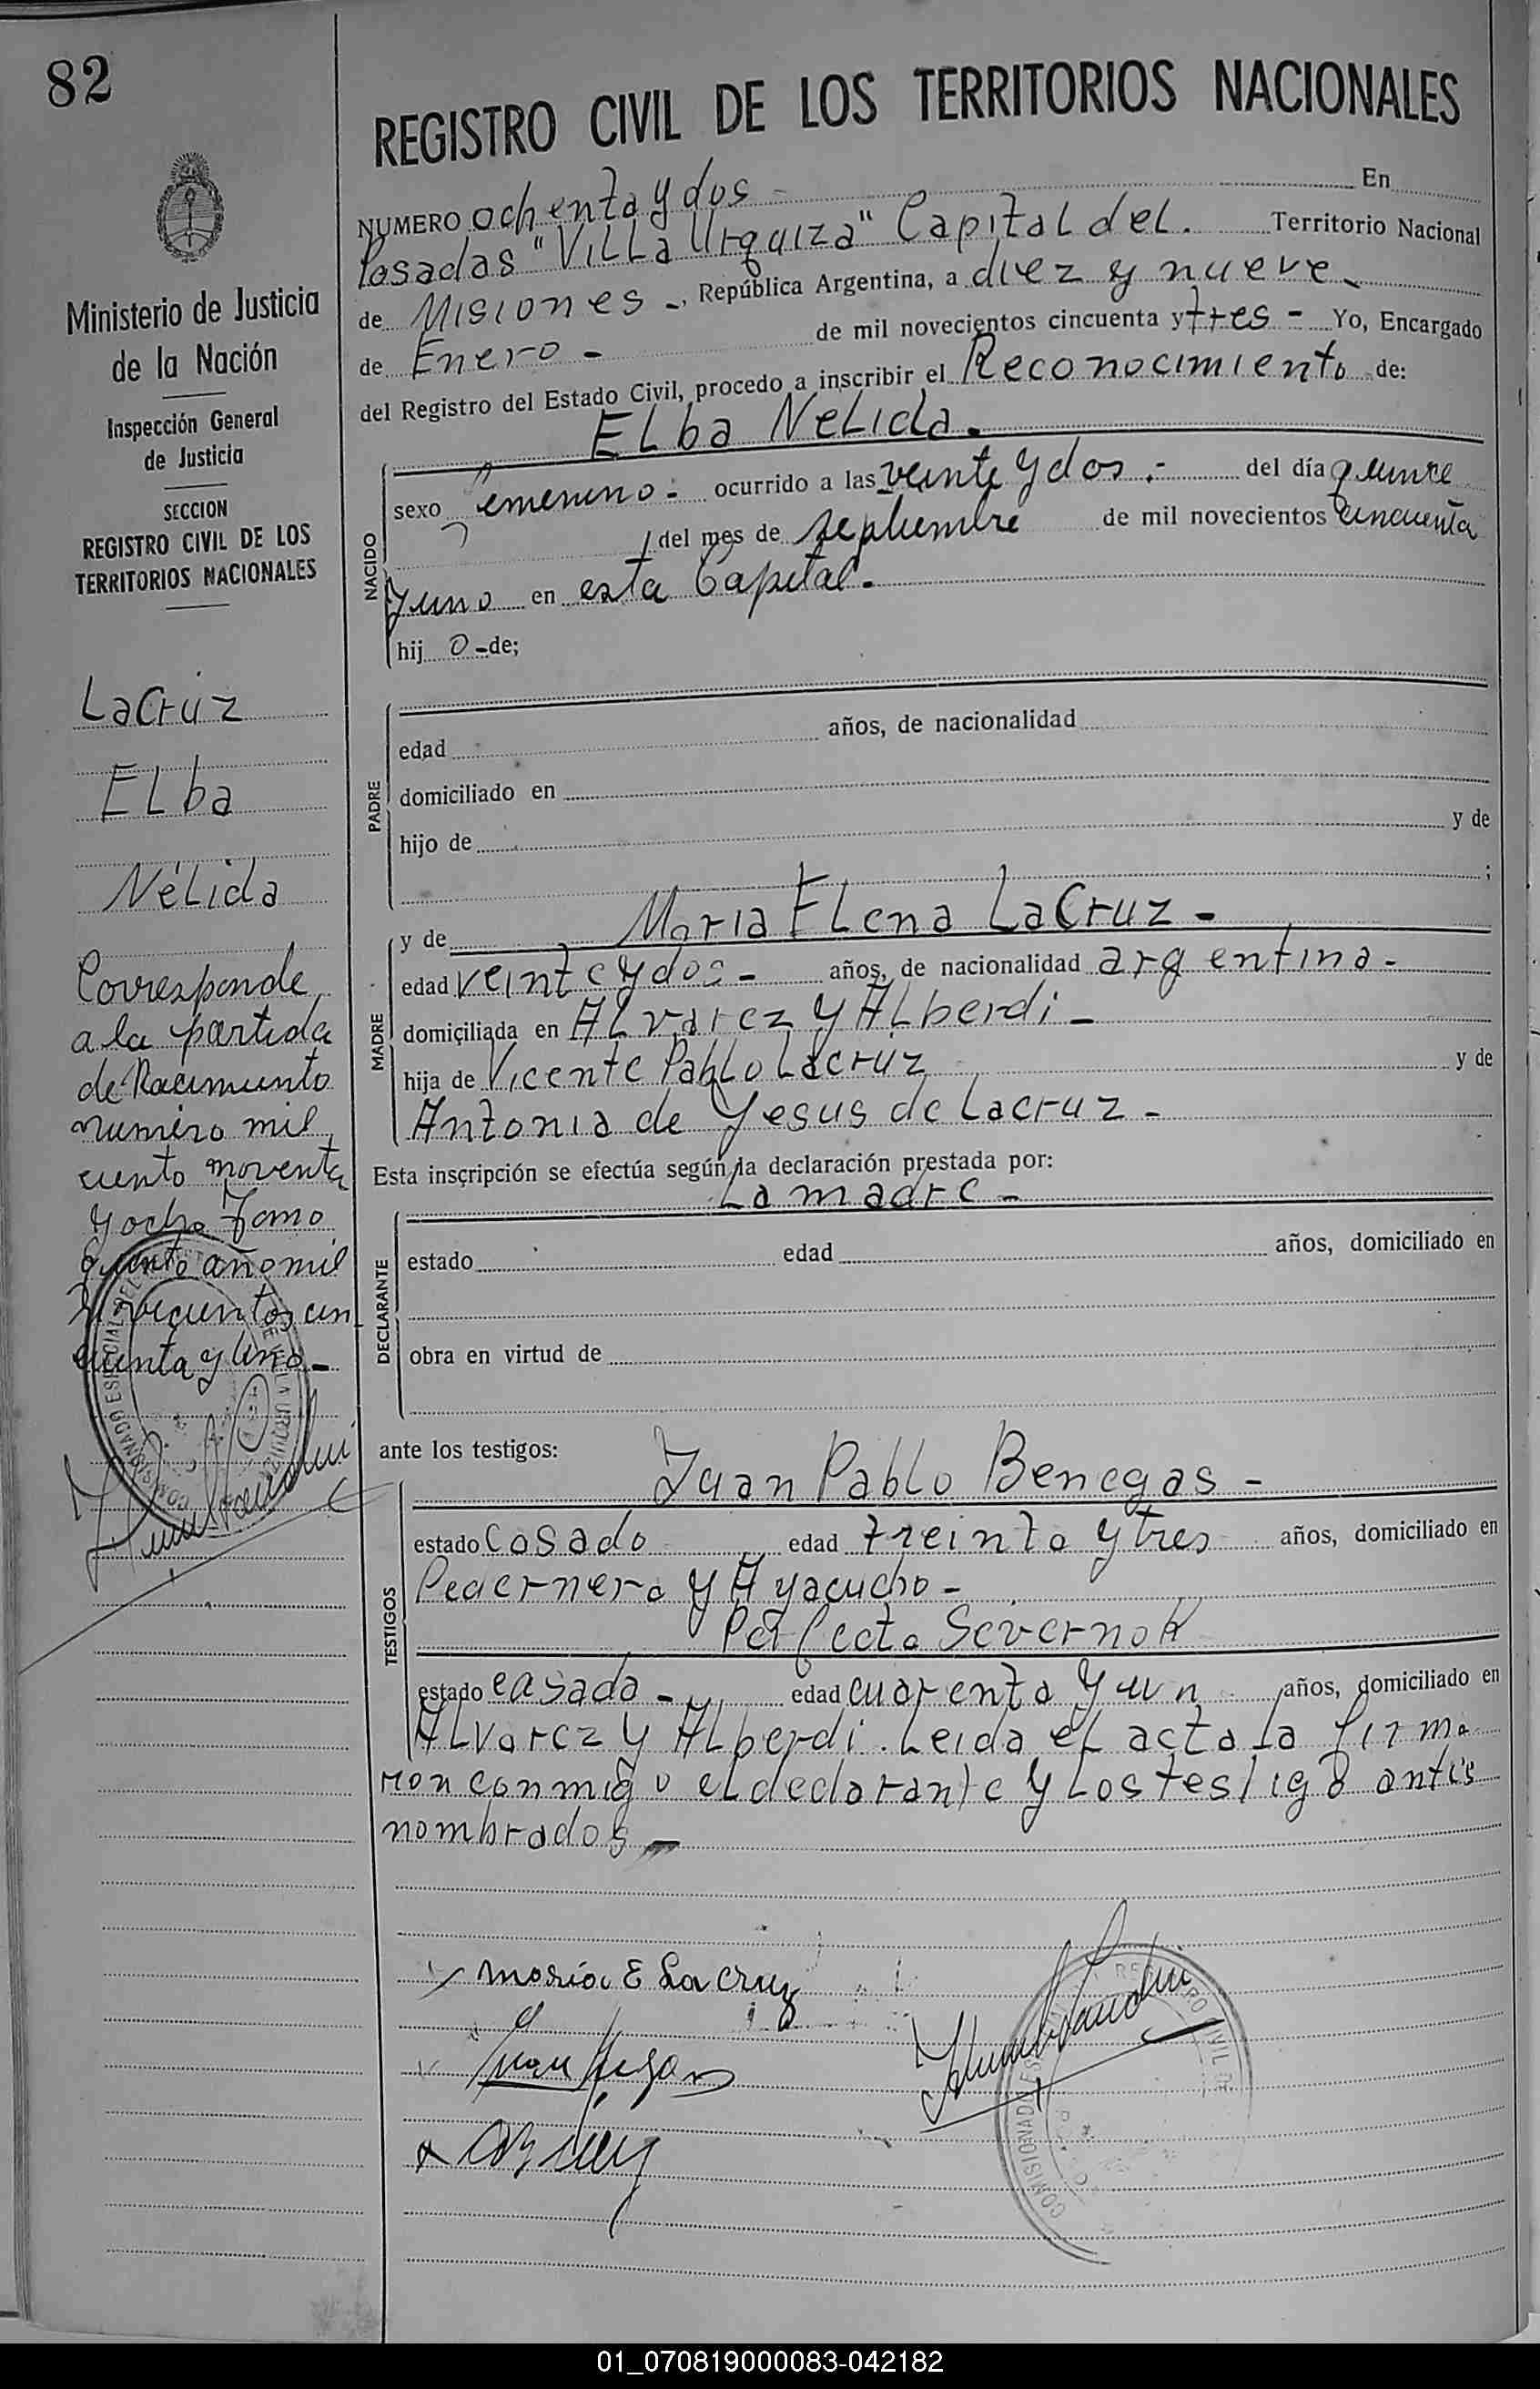 82
REGISTRO CIVIL DE LOS TERRITORIOS NACIONALES
Ministerio de Justicia
de la Nación
Inspección General
de Justicia
SECCION
REGISTRO CIVIL DE LOS
TERRITORIOS NACIONALES
LaCruz
ELba
NéLida
Corresponde
a la partida
de Nacimiento
numero mil
ciento noventa
y ocho Tomo
quinto año mil
novecientos cin
cuenta y uno -
NUMERO ochenta y dos - En
Posadas "ViLLa Urquiza" CapitaL deL. Territorio Nacional
de Misiones -, República Argentina, a diez y nueve -
de Enero - de mil novecientos cincuenta y tres - Yo, Encargado
del Registro del Estado Civil, procedo a inscribir el Reconocimiento de:
ELba NeLida.
NACIDO
sexo femenino - ocurrido a las veinte y dos - del día quince
del mes de septiembre de mil novecientos cincuenta
y uno en esta Capital.
hij o - de;
PADRE
edad años, de nacionalidad
domiciliado en
hijo de y de
;
MADRE
y de Maria ELena LaCruz -
edad veinte y dos - años, de nacionalidad argentina -
domiciliada en ALvarez y ALberdi -
hija de Vicente PabLo Lacruz y de
Antonia de Yesus de Lacruz -
Esta inscripción se efectúa según la declaración prestada por:
La madre -
DECLARANTE
estado edad años, domiciliado en
obra en virtud de
ante los testigos:
TESTIGOS
Juan PabLo Benegas -
estado casado edad treinta y tres años, domiciliado en
Pedernera y Ayacucho -
Perfecta
estado casada - edad cuarenta y un años, domiciliado en
ALvarez y ALberdi. Leida eL acta la firma
ron conmigo eL declarante y Los testigo antes
nombrados -
María E Lacruz
REGISTRO CIVIL DE
01_070819000083-042182